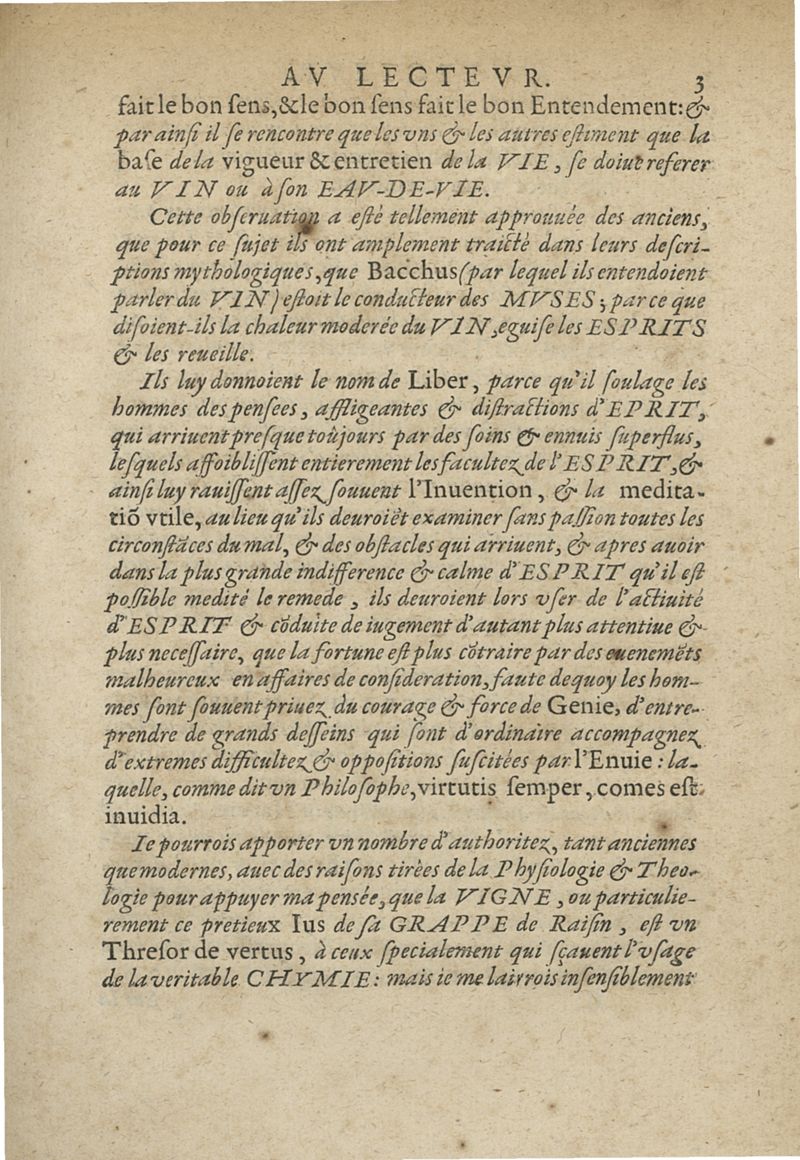 AV LECTEVR. 3
fait le bon ſens, & le bon ſens fait le bon Entendement: &
par ainſi il ſe rencontre que les vns & les autres eſtiment que la
baſe de la vigueur & entretien de la VIE, ſe doiuẽt referer
au VIN ou à ſon EAV-DE-VIE.
Cette obſeruation a eſtè tellement approuuée des anciens,
que pour ce ſujet ils ont amplement traicté dans leurs deſcri-
ptions mythologiques, que Bacchus (par lequel ils entendoient
parler du VIN) eſtoit le conducteur des MVSES; par ce que
diſoient-ils la chaleur moderée du VIN, eguiſe les ESPRITS
& les reueille.
Ils luy donnoient le nom de Liber, parce qu'il ſoulage les
hommes des penſees, affligeantes & diſtractions d'EPRIT,
qui arriuent preſque toûjours par des ſoins & ennuis ſuperflus,
leſquels affoibliſſent entierement les facultez de l'ESPRIT, &
ainſi luy rauiſſent aſſez ſouuent l'Inuention, & la medita-
tiõ vtile, au lieu qu'ils deuroiẽt examiner ſans paſſion toutes les
circonſtãces du mal, & des obſtacles qui arriuent, & apres auoir
dans la plus grande indifference & calme d'ESPRIT qu'il eſt
poſſible medité le remede, ils deuroient lors vſer de l'actiuité
d'ESPRIT & cõduite de iugement d'autant plus attentiue &
plus neceſſaire, que la fortune eſt plus cõtraire par des euenemẽts
malheureux en affaires de conſideration, faute dequoy les hom-
mes ſont ſouuent priuez du courage & force de Genie, d'entre-
prendre de grands deſſeins qui ſont d'ordinaire accompagnez
d'extremes difficultez & oppoſitions ſuſcitées par l'Enuie: la-
quelle, comme dit vn Philoſophe, virtutis ſemper, comes eſt
inuidia.
Ie pourrois apporter vn nombre d'authoritez, tant anciennes
que modernes, auec des raiſons tirèes de la Phyſiologie & Theo-
logie pour appuyer ma pensée, que la VIGNE, ou particulie-
rement ce pretieux Ius de ſa GRAPPE de Raiſin, eſt vn
Threſor de vertus, à ceux ſpecialement qui ſçauent l'vſage
de la veritable CHYMIE: mais ie me lairrois inſenſiblement